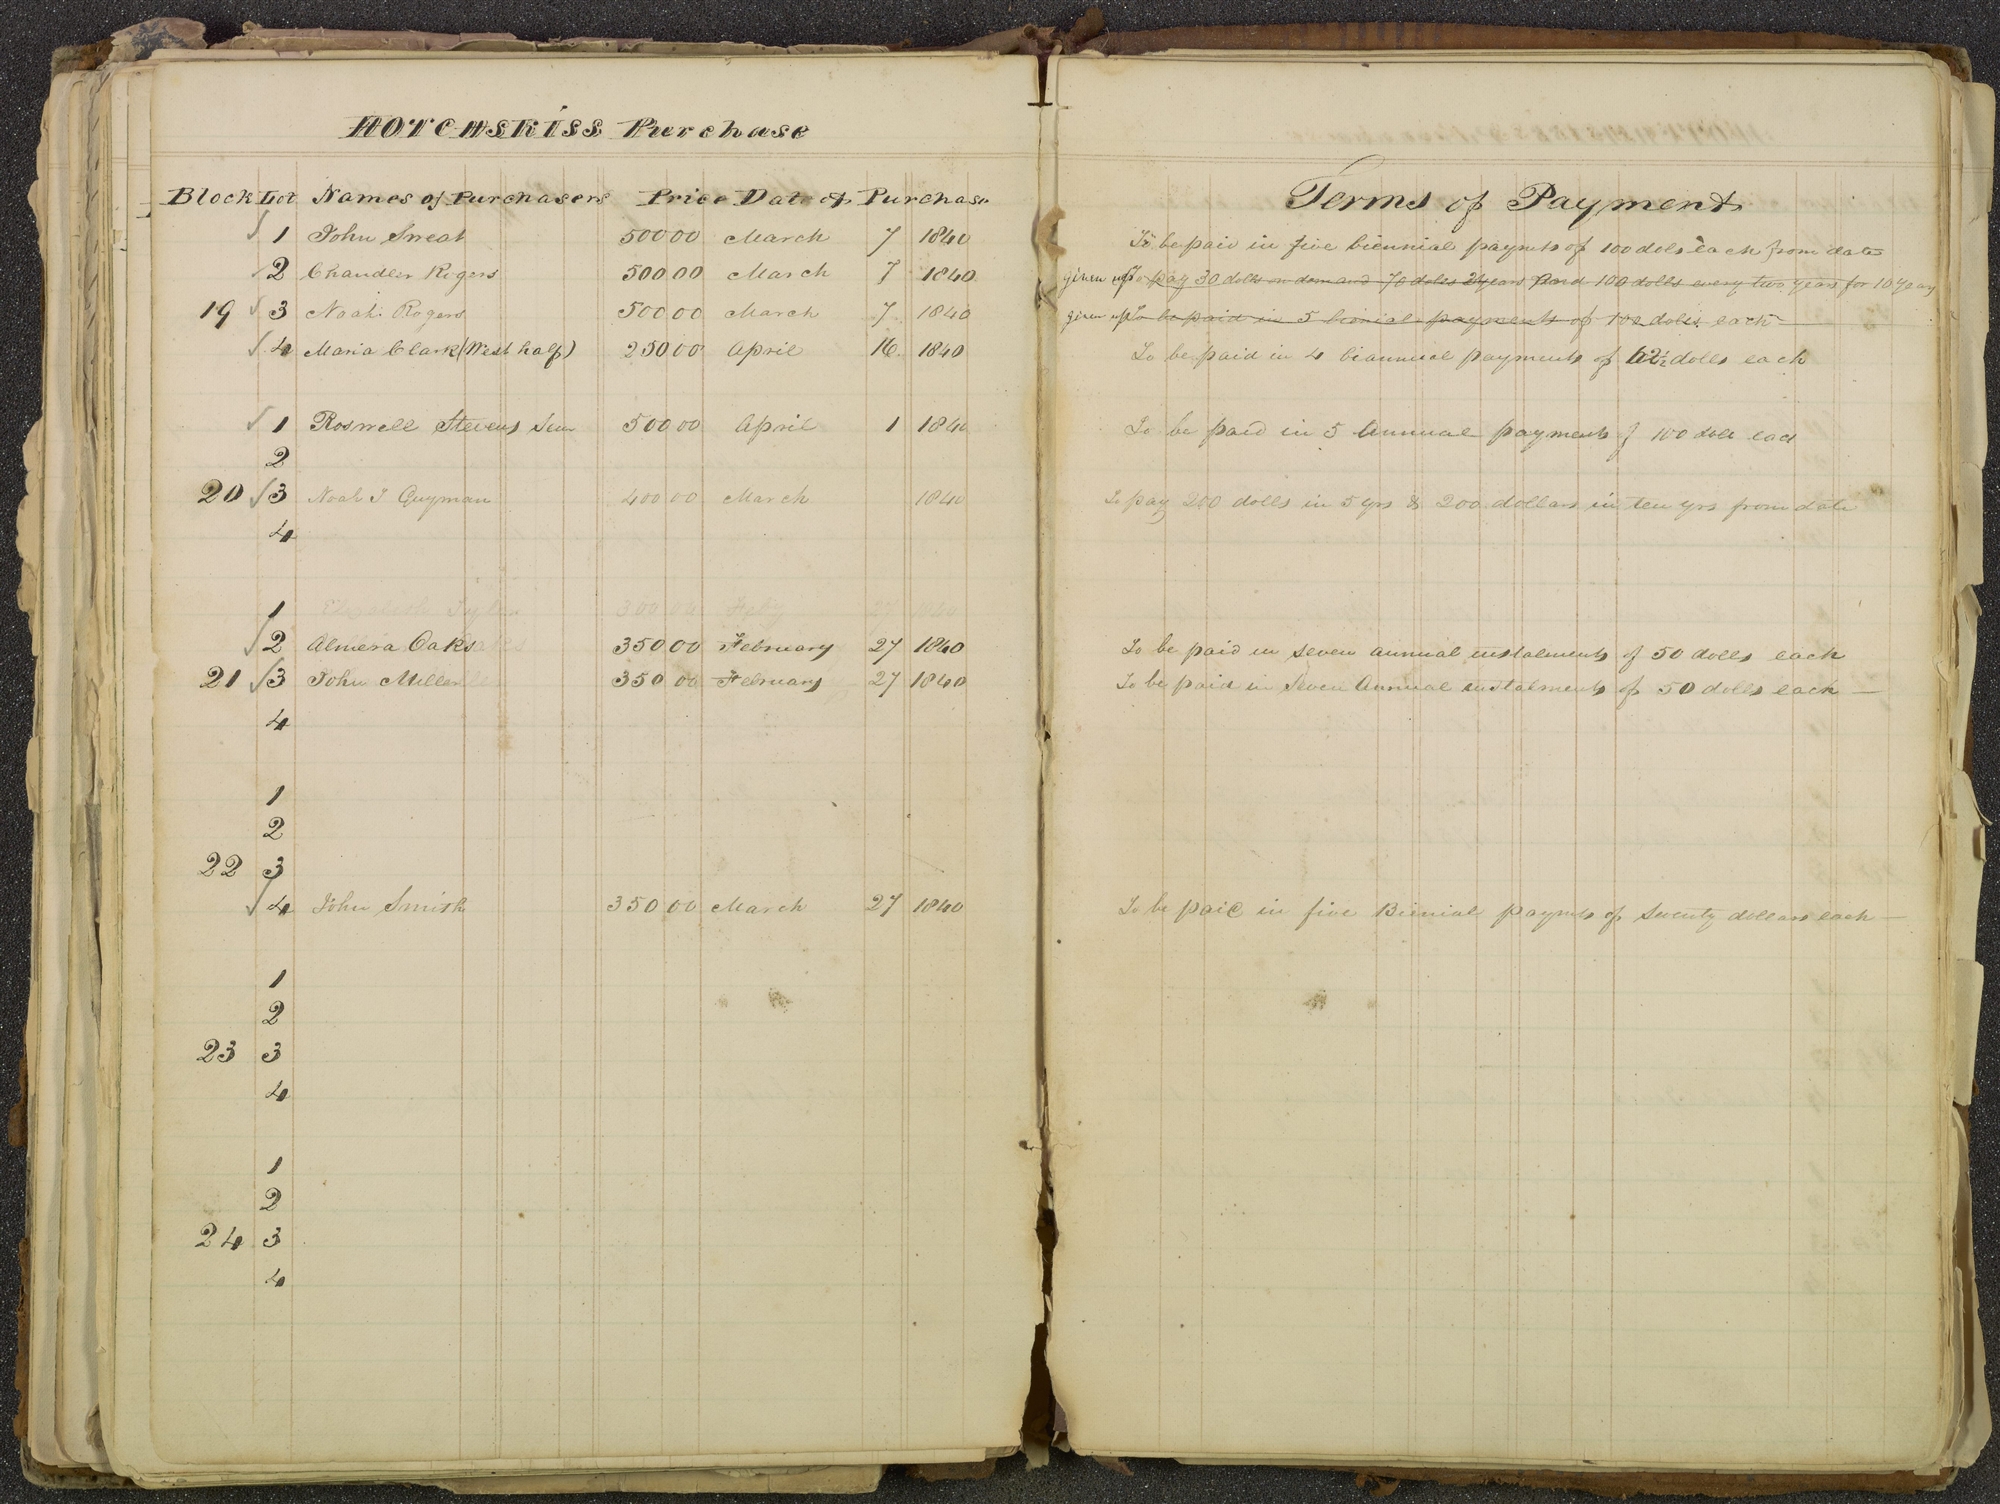 HOTCHSKISS Purchase
Block Lot Names of Purchasers Price Date of Purchase
Terms of Payment
1 John Sweat 500 00 March 7 1840 To be paid in five biennial paymts of 100 dols each from date
2 Chandler Rogers 500 00 March 7 1840 given up To pay 30 dolls on demand 70 dolls 2 years and 100 dolls every two years for 10 years
19 3 Noah Rogers 500 00 March 7 1840 given up To be paid in 5 bienial payments of 100 dolls. each
4 Maria Clark (West half) 250 00 April 16 1840 To be paid in 4 biannual payments of 62½ dolls each
1 Roswell Stevens Sen 500 00 April 1 1840 To be paid in 5 annual payments of 100 dolls each
2
20 3 Noah T Guyman 400 00 March 1840 To pay 200 dolls in 5 yrs & 200 dollars in ten yrs from date
4
1 Elizabeth Tyler 300 00 Feby 27 1840
2 Almera Oaks 350 00 February 27 1840 To be paid in seven annual instalments of 50 dolls each
21 3 John Miller 350 00 February 27 1840 To be paid in Seven Annual instalments of 50 dolls each
4
1
2
22 3
4 John Smith 350 00 March 27 1840 To be paid in five Bienial paymts of Seventy dollars each
1
2
23 3
4
1
2
24 3
4